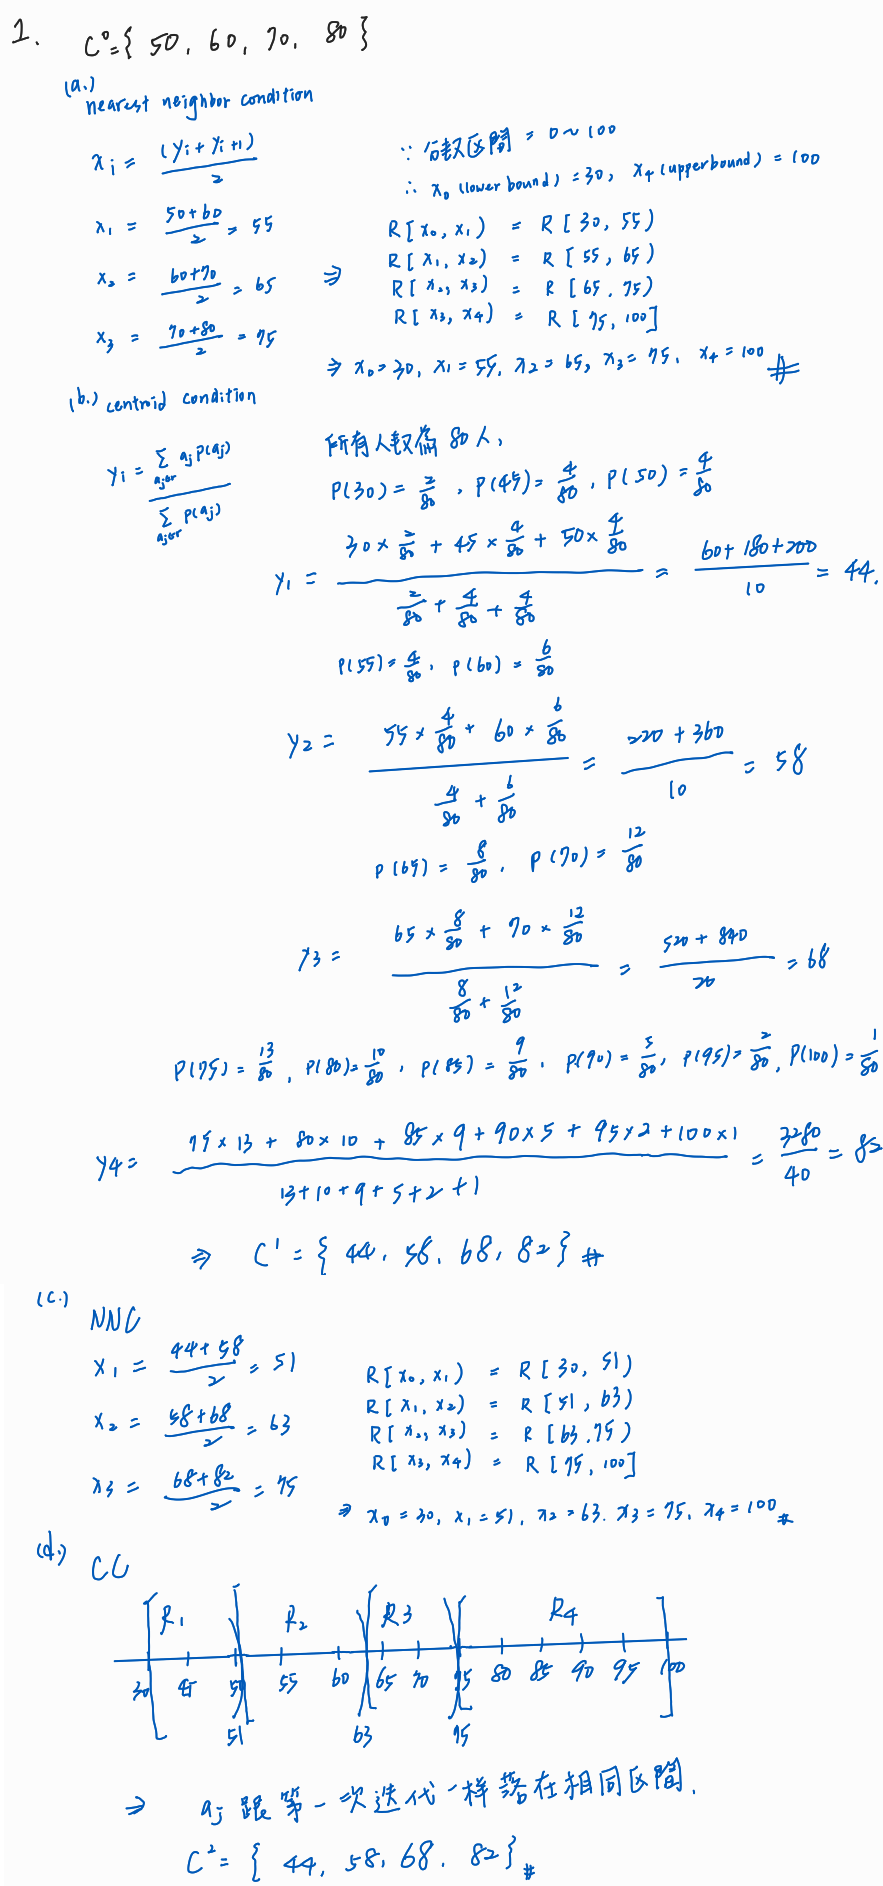 1. C⁰={ 50, 60, 70, 80 }
(a.)
nearest neighbor condition
xi = (yi + yi+1) / 2
∵ 分数区間 = 0 ~ 100
∴ x0 (lower bound) = 30, x4 (upper bound) = 100
x1 = (50+60) / 2 = 55
x2 = (60+70) / 2 = 65
x3 = (70+80) / 2 = 75
⇒ R[x0, x1) = R[30, 55)
R[x1, x2) = R[55, 65)
R[x2, x3) = R[65, 75)
R[x3, x4) = R[75, 100]
⇒ x0=30, x1=55, x2=65, x3=75, x4=100 #
(b.) centroid condition
yi = Σ aj∈r aj P(aj) / Σ aj∈r P(aj)
所有人数為 80人,
P(30) = 2/80, P(45) = 4/80, P(50) = 4/80
y1 = (30 × 2/80 + 45 × 4/80 + 50 × 4/80) / (2/80 + 4/80 + 4/80) = (60+180+200) / 10 = 44.
P(55) = 4/80, P(60) = 6/80
y2 = (55 × 4/80 + 60 × 6/80) / (4/80 + 6/80) = (220 + 360) / 10 = 58
P(65) = 8/80, P(70) = 12/80
y3 = (65 × 8/80 + 70 × 12/80) / (8/80 + 12/80) = (520 + 840) / 20 = 68
P(75) = 13/80, P(80) = 10/80, P(85) = 9/80, P(90) = 5/80, P(95) = 2/80, P(100) = 1/80
y4 = (75×13 + 80×10 + 85×9 + 90×5 + 95×2 + 100×1) / (13+10+9+5+2+1) = 3280/40 = 82
⇒ C¹ = { 44, 58, 68, 82 } #
(c.)
NNC
x1 = (44+58) / 2 = 51
x2 = (58+68) / 2 = 63
x3 = (68+82) / 2 = 75
R[x0, x1) = R[30, 51)
R[x1, x2) = R[51, 63)
R[x2, x3) = R[63, 75)
R[x3, x4) = R[75, 100]
⇒ x0=30, x1=51, x2=63, x3=75, x4=100 #
(d.) CC
R1 R2 R3 R4
30 45 50 55 60 65 70 75 80 85 90 95 100
51 63 75
⇒ aj 跟第一次迭代一样落在相同区間.
C² = { 44, 58, 68, 82 } #